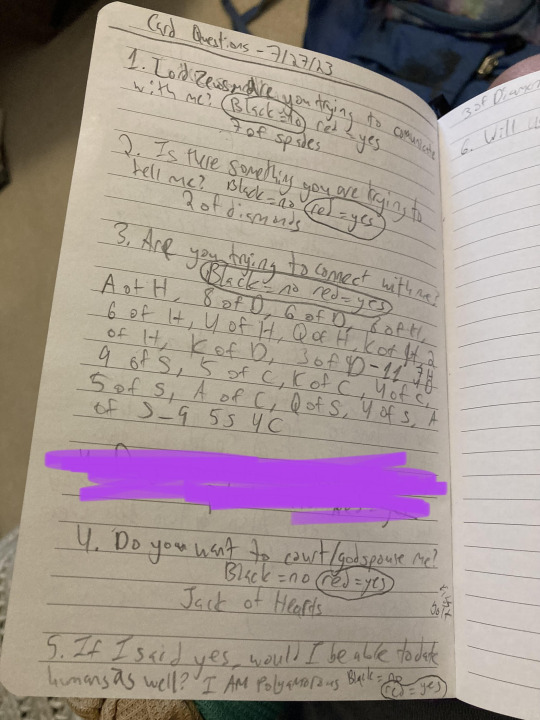 Card Questions - 7/27/23
1. Lord Zeus, are you trying to comunicate
with me? Black = no red = yes
7 of spades
2. Is there something you are trying to
tell me? Black = no red = yes
2 of diamonds
3. Are you trying to connect with me?
Black = no red = yes
A of H, 8 of D, 6 of D, 8 of H,
6 of H, 4 of H, Q of H, K of H, 2
of H, K of D, 3 of D - 11
9 of S, 5 of C, K of C, 4 of C,
5 of S, A of C, Q of S, 4 of S, A
of S - 9 5S 4C
4. Do you want to court/godspouse me?
Black = no red = yes
Jack of Hearts
5. If I said yes, would I be able to date
humans as well? I AM Polyamorous Black = no
red = yes
3 of Diamon
6. Will